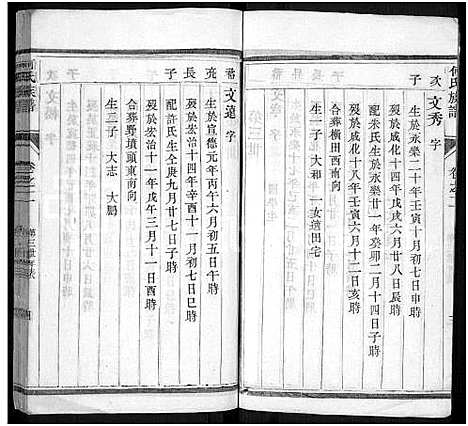 何氏族譜 卷之二
次 文秀 字
子 生於永樂二十年壬寅十月初七日申時
歿於成化十四年戊戌六月廿八日辰時
配朱氏生於永樂廿一年癸卯二月十四日子時
歿於成化十八年壬寅六月十二日亥時
合葬橫田西南向
生一子 大和 一女適田宅
文遠 字
充 生於宣德元年丙午六月初五日午時
長 歿於宏治十年丁巳十月初七日巳時
子 配許氏生
九月廿七日子時
歿於宏治十一年戊午三月十一日酉時
合葬野墳頭東南向
生二子 大志 大鵬
何氏族譜 卷之二 第三世年表